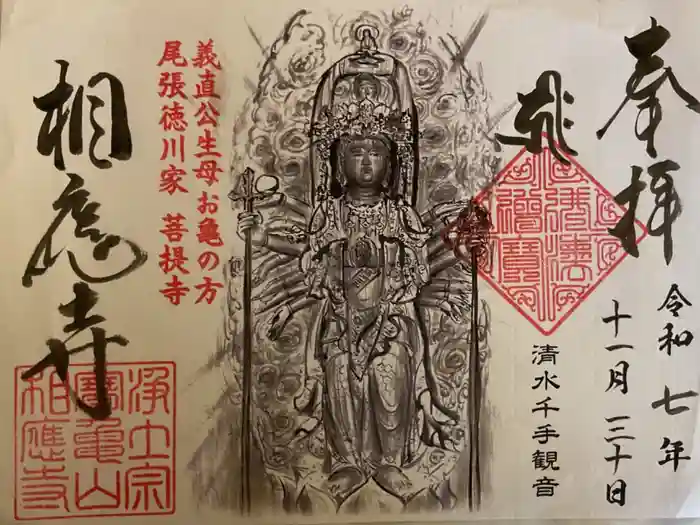 奉拝
令和七年
十一月三十日
清水千手観音
佛法僧寶
義直公生母お亀の方
尾張徳川家 菩提寺
相應寺
浄土宗
寶亀山
相應寺